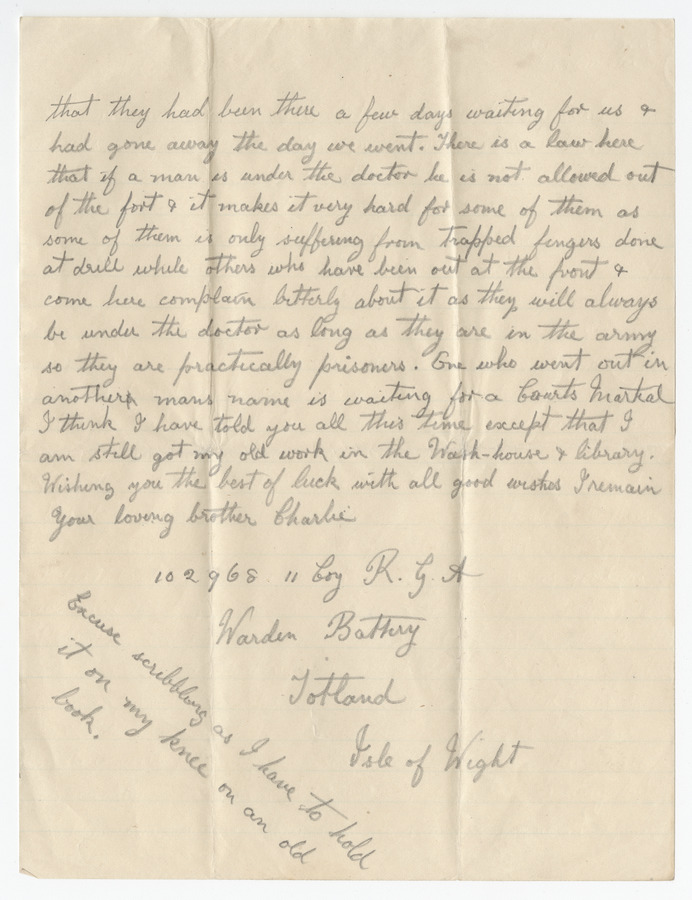 that they had been there a few days waiting for us &
had gone away the day we went. There is a law here
that if a man is under the doctor he is not allowed out
of the fort & it makes it very hard for some of them as
some of them is only suffering from trapped fingers done
at drill while others who have been out at the front &
come here complain bitterly about it as they will always
be under the doctor as long as they are in the army
so they are practically prisoners. One who went out in
another mans name is waiting for a Courts Martial
I think I have told you all this time except that I
am still got my old work in the Wash-house & library.
Wishing you the best of luck with all good wishes I remain
Your loving brother Charlie
102968 11 Coy R. G. A
Warden Battery
Totland
Isle of Wight
Excuse scribbling as I have to hold
it on my knee on an old
book.